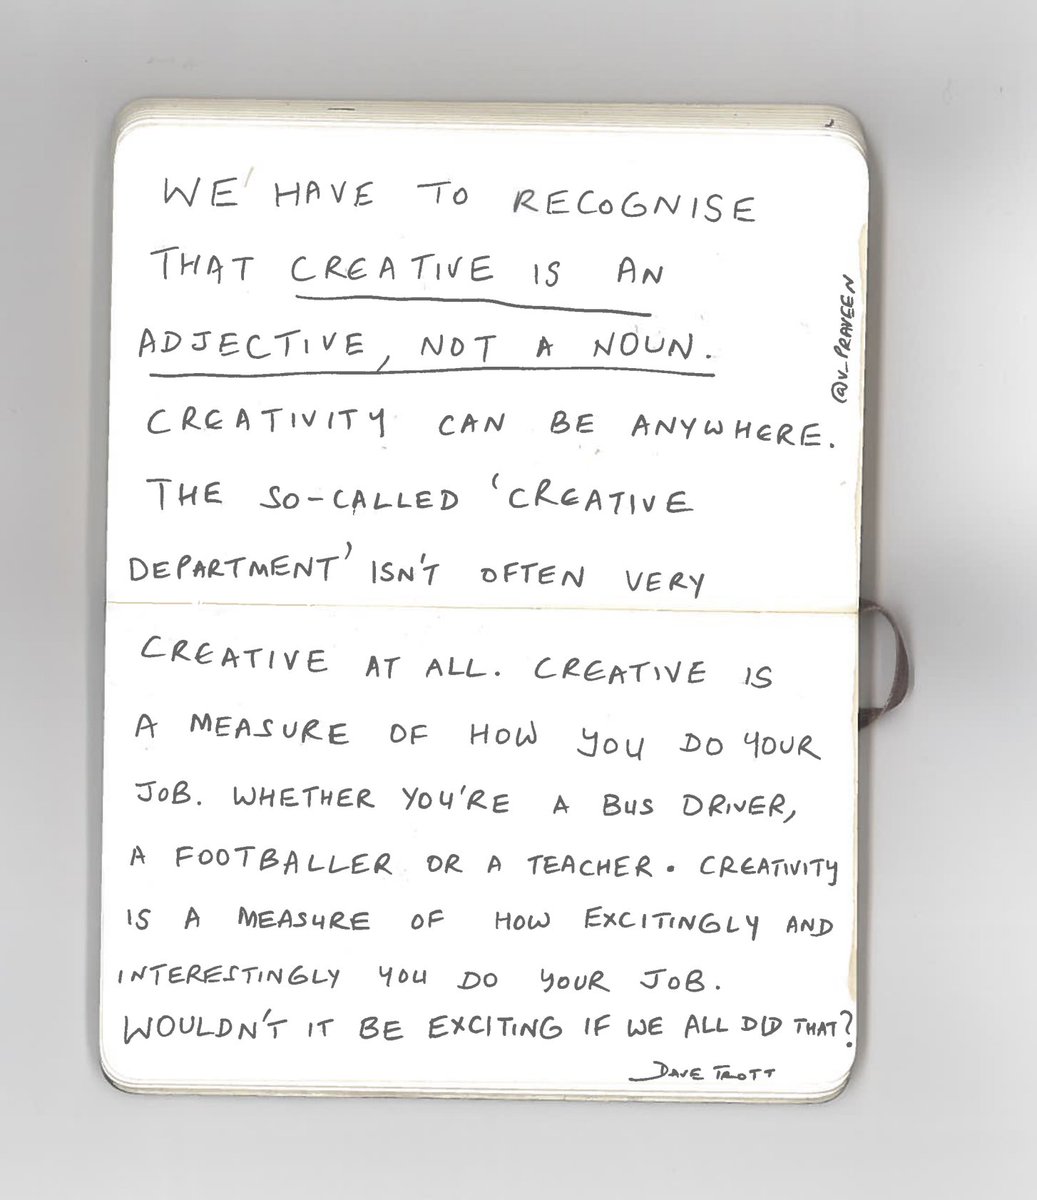 WE HAVE TO RECOGNISE
THAT CREATIVE IS AN
ADJECTIVE, NOT A NOUN.
CREATIVITY CAN BE ANYWHERE.
THE SO-CALLED 'CREATIVE
DEPARTMENT' ISN'T OFTEN VERY
CREATIVE AT ALL. CREATIVE IS
A MEASURE OF HOW YOU DO YOUR
JOB. WHETHER YOU'RE A BUS DRIVER,
A FOOTBALLER OR A TEACHER. CREATIVITY
IS A MEASURE OF HOW EXCITINGLY AND
INTERESTINGLY YOU DO YOUR JOB.
WOULDN'T IT BE EXCITING IF WE ALL DID THAT?
DAVE TROTT
@V_PRAVEEN